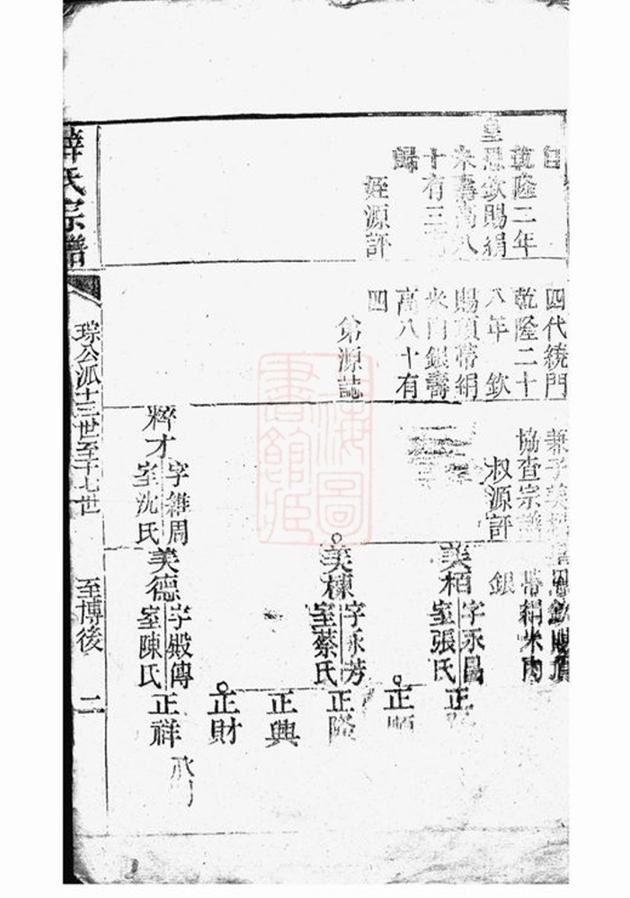 乾隆二年
皇恩欽賜絹
米壽高八
十有三
歸
姪源評
四代統門
乾隆二十
八年 欽
賜頂帶絹
米肉銀壽
高八十有
四
弟源誌
協查宗譜
叔源評
帶絹米肉
銀
美栢 字永昌 室張氏
正
正順
美棟 字永芳 室蔡氏
正隆
正興
正財
粹才 字維周 室沈氏
美德 字殿傳 室陳氏
正祥
薛氏宗譜
琮公派十三世至十七世
至博後
二
上海圖書館藏